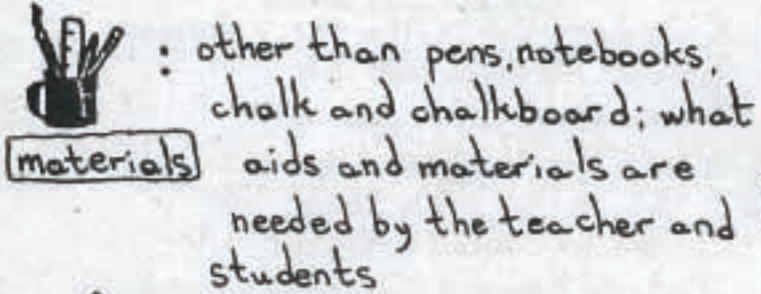 : other than pens, notebooks,
chalk and chalkboard; what
materials aids and materials are
needed by the teacher and
students